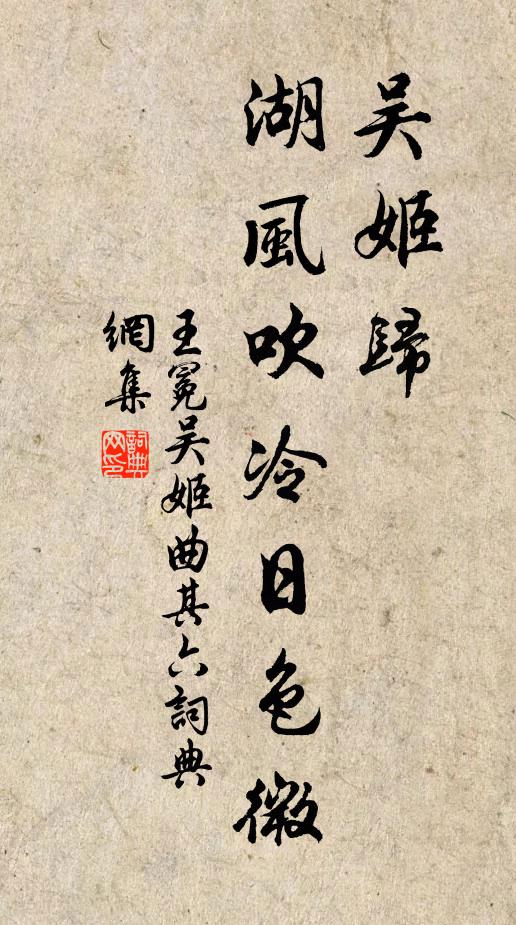 吴姬歸
湖風吹冷日色微
王冕吴姬曲其六詞典
網集
詞典
网印